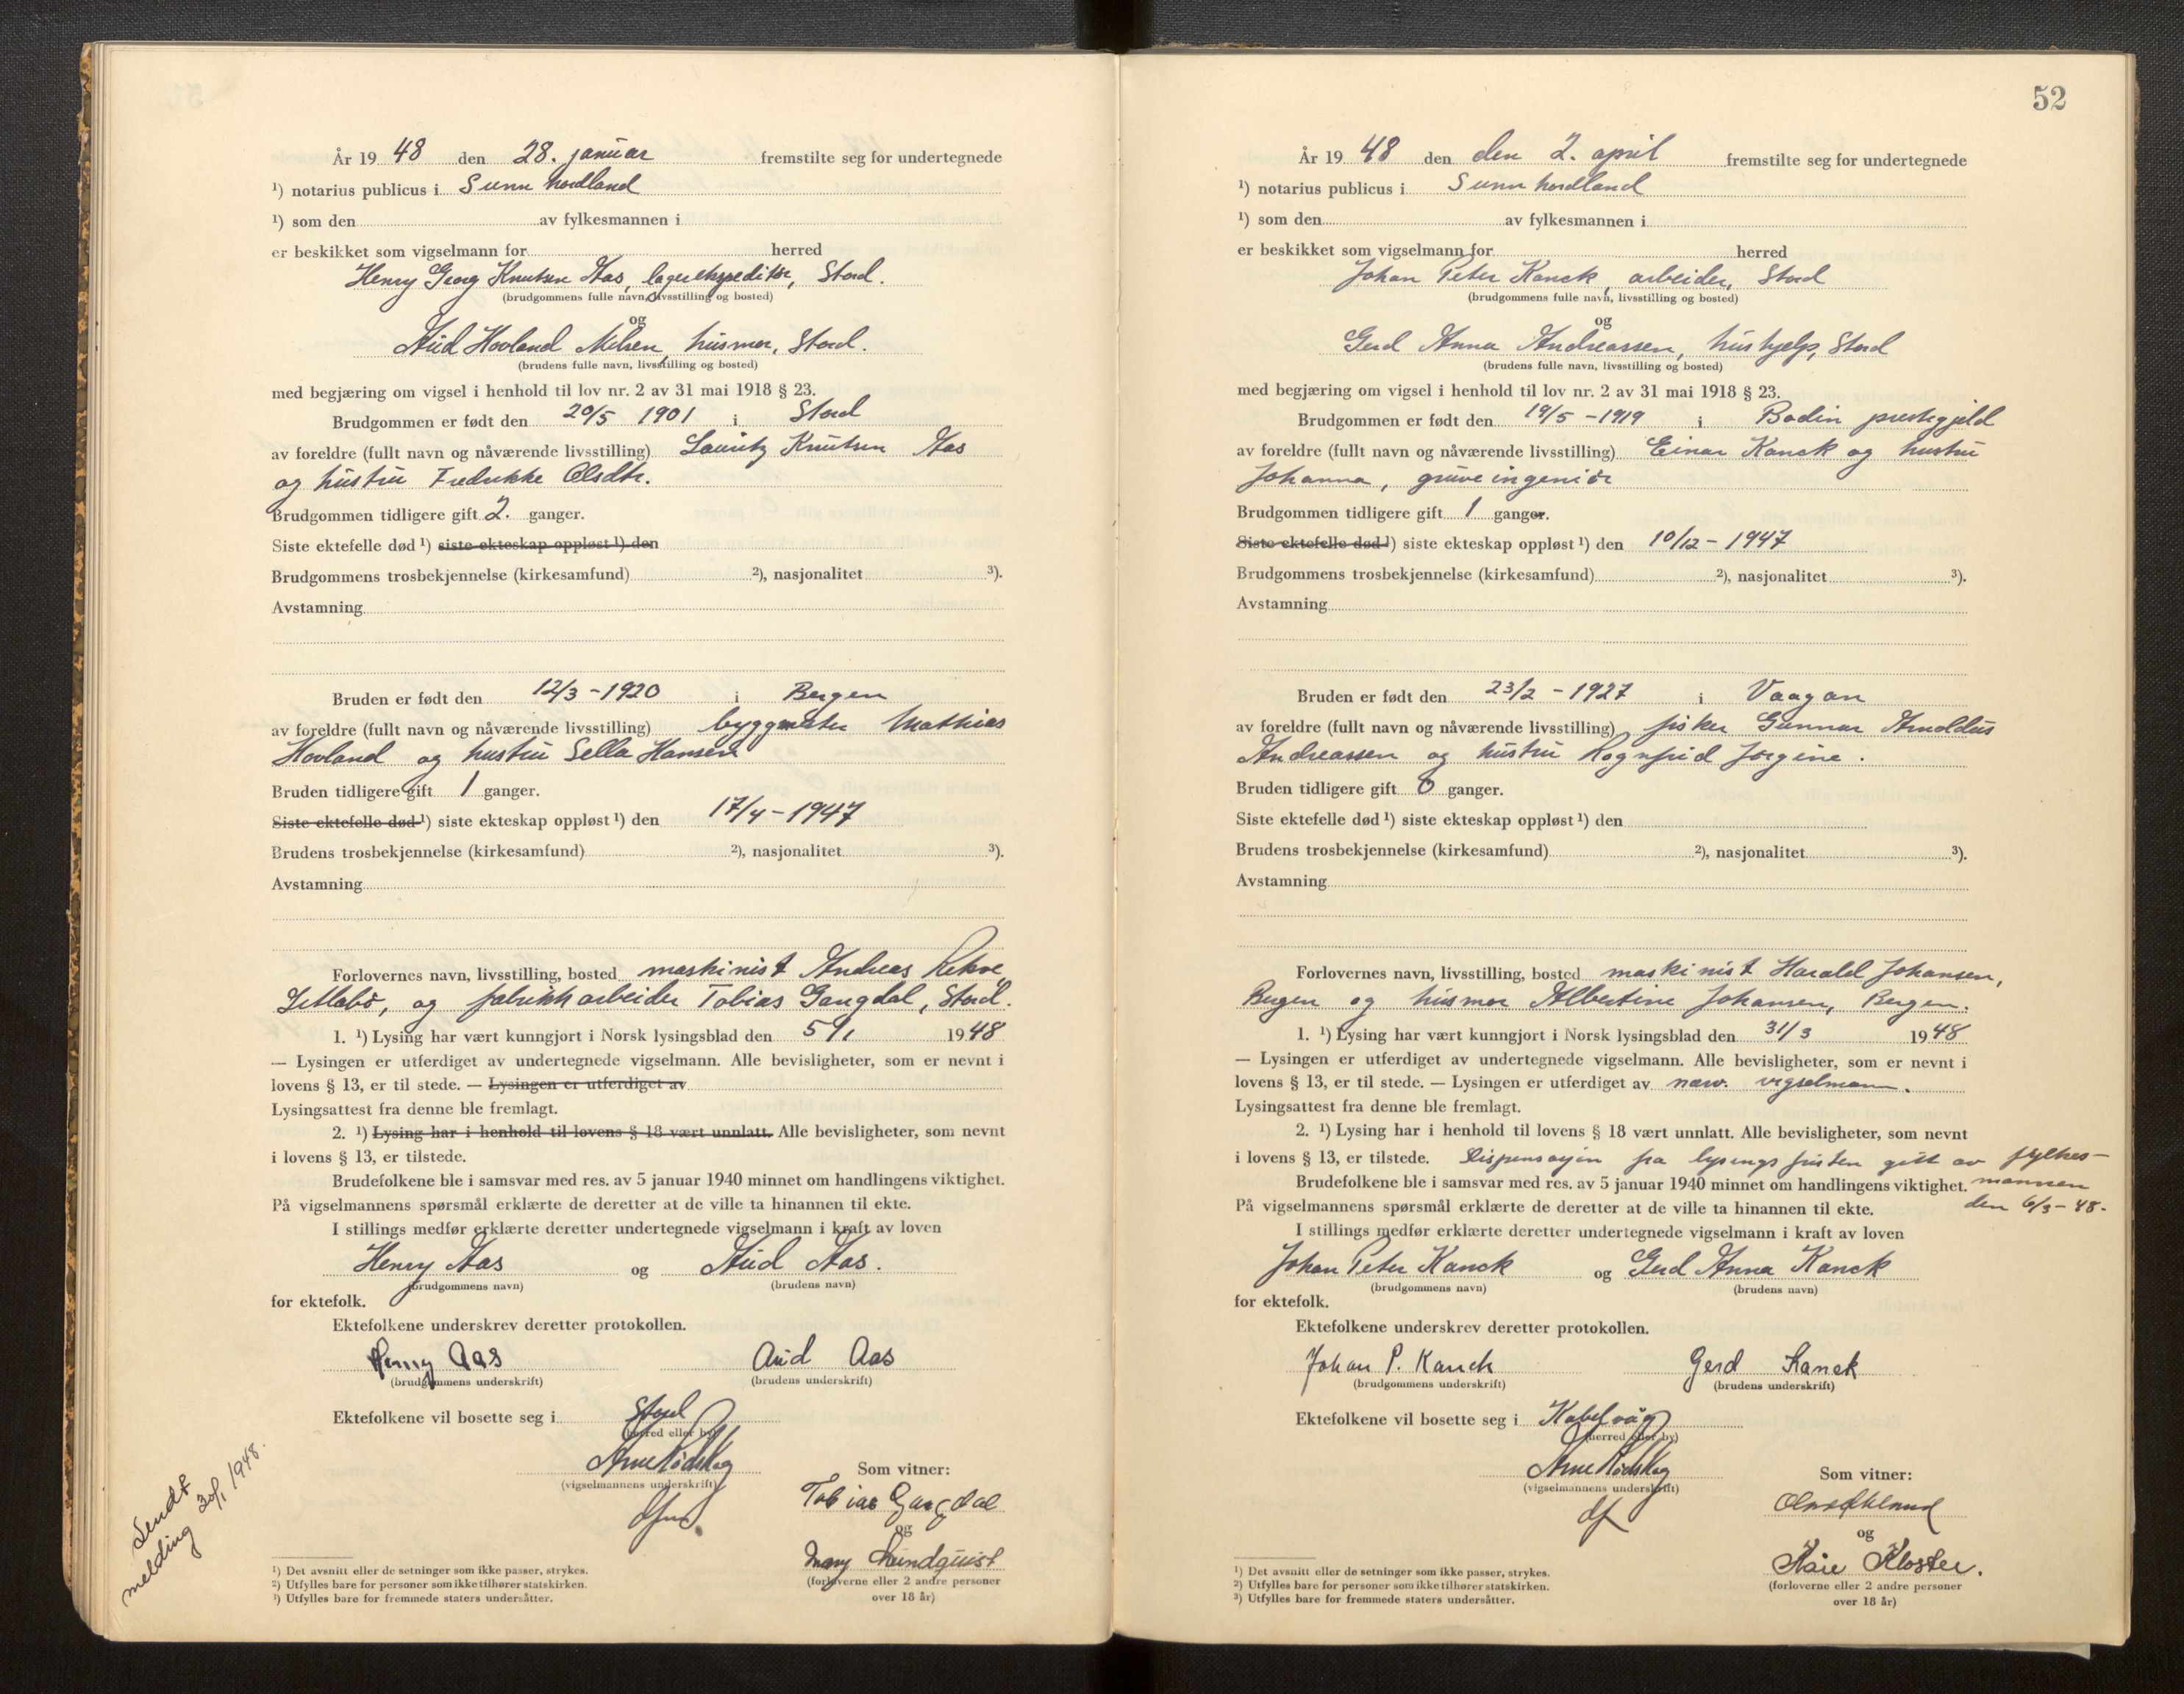 År 1948 den 28. januar fremstilte seg for undertegnede
¹) notarius publicus i Sunnhordland
¹) som den av fylkesmannen i
er beskikket som vigselmann for herred
Henry Georg Knutsen Aas, lagerekspeditør, Stord.
(brudgommens fulle navn, livsstilling og bosted)
og
Aud Hovland Nilsen, husmor, Stord.
(brudens fulle navn, livsstilling og bosted)
med begjæring om vigsel i henhold til lov nr. 2 av 31 mai 1918 § 23.
Brudgommen er født den 20/5 1901 i Stord
av foreldre (fullt navn og nåværende livsstilling) Lauritz Knutsen Aas
og hustru Fredrikke Olsdtr.
Brudgommen tidligere gift 2. ganger.
Siste ektefelle død ¹) siste ekteskap oppløst ¹) den
Brudgommens trosbekjennelse (kirkesamfund) ²), nasjonalitet ³).
Avstamning
Bruden er født den 12/3 - 1920 i Bergen
av foreldre (fullt navn og nåværende livsstilling) byggmester Mathias
Hovland og hustru Sella Hansen
Bruden tidligere gift 1 ganger.
Siste ektefelle død ¹) siste ekteskap oppløst ¹) den 17/4 - 1947
Brudens trosbekjennelse (kirkesamfund) ²), nasjonalitet ³).
Avstamning
Forlovernes navn, livsstilling, bosted maskinist Andreas Rekve
Litlabø, og fabrikkarbeider Tobias Gangdal, Stord.
1. ¹) Lysing har vært kunngjort i Norsk lysingsblad den 5/1 1948
— Lysingen er utferdiget av undertegnede vigselmann. Alle bevisligheter, som er nevnt i
lovens § 13, er til stede. — Lysingen er utferdiget av
Lysingsattest fra denne ble fremlagt.
2. ¹) Lysing har i henhold til lovens § 18 vært unnlatt. Alle bevisligheter, som nevnt
i lovens § 13, er tilstede.
Brudefolkene ble i samsvar med res. av 5 januar 1940 minnet om handlingens viktighet.
På vigselmannens spørsmål erklærte de deretter at de ville ta hinannen til ekte.
I stillings medfør erklærte deretter undertegnede vigselmann i kraft av loven
Henry Aas og Aud Aas.
(brudgommens navn) (brudens navn)
for ektefolk.
Ektefolkene underskrev deretter protokollen.
Henry Aas Aud Aas
(brudgommens underskrift) (brudens underskrift)
Ektefolkene vil bosette seg i Stord
(herred eller by)
Arne Rødskog
(vigselmannens underskrift)
Som vitner:
Tobias Gangdal
og
Mary Lundquist
(forloverne eller 2 andre personer
over 18 år)
Sendt
melding 30/1 1948.
¹) Det avsnitt eller de setninger som ikke passer, strykes.
²) Utfylles bare for personer som ikke tilhører statskirken.
³) Utfylles bare for fremmede staters undersåtter.
52
År 1948 den den 2. april fremstilte seg for undertegnede
¹) notarius publicus i Sunnhordland
¹) som den av fylkesmannen i
er beskikket som vigselmann for herred
Johan Peter Kanck, arbeider, Stord
(brudgommens fulle navn, livsstilling og bosted)
og
Gerd Anna Andreassen, hushjelp, Stord
(brudens fulle navn, livsstilling og bosted)
med begjæring om vigsel i henhold til lov nr. 2 av 31 mai 1918 § 23.
Brudgommen er født den 19/5 - 1919 i Bodin prestegjeld
av foreldre (fullt navn og nåværende livsstilling) Einar Kanck og hustru
Johanna, gruveingeniør
Brudgommen tidligere gift 1 ganger.
Siste ektefelle død ¹) siste ekteskap oppløst ¹) den 10/12 - 1947
Brudgommens trosbekjennelse (kirkesamfund) ²), nasjonalitet ³).
Avstamning
Bruden er født den 23/2 - 1927 i Vaagan
av foreldre (fullt navn og nåværende livsstilling) fisker Gunnar Arnoldus
Andreassen og hustru Ragnfrid Jørgine.
Bruden tidligere gift 0 ganger.
Siste ektefelle død ¹) siste ekteskap oppløst ¹) den
Brudens trosbekjennelse (kirkesamfund) ²), nasjonalitet ³).
Avstamning
Forlovernes navn, livsstilling, bosted maskinist Harald Johansen,
Bergen og husmor Albertine Johansen, Bergen.
1. ¹) Lysing har vært kunngjort i Norsk lysingsblad den 31/3 1948
— Lysingen er utferdiget av undertegnede vigselmann. Alle bevisligheter, som er nevnt i
lovens § 13, er til stede. — Lysingen er utferdiget av nærv. vigselmann.
Lysingsattest fra denne ble fremlagt.
2. ¹) Lysing har i henhold til lovens § 18 vært unnlatt. Alle bevisligheter, som nevnt
i lovens § 13, er tilstede. Dispensasjon fra lysingsfristen gitt av fylkes-
mannen
den 6/3 - 48.
Brudefolkene ble i samsvar med res. av 5 januar 1940 minnet om handlingens viktighet.
På vigselmannens spørsmål erklærte de deretter at de ville ta hinannen til ekte.
I stillings medfør erklærte deretter undertegnede vigselmann i kraft av loven
Johan Peter Kanck og Gerd Anna Kanck
(brudgommens navn) (brudens navn)
for ektefolk.
Ektefolkene underskrev deretter protokollen.
Johan P. Kanck Gerd Kanck
(brudgommens underskrift) (brudens underskrift)
Ektefolkene vil bosette seg i Kabelvåg
(herred eller by)
Arne Rødskog
(vigselmannens underskrift)
df
Som vitner:
og
Kåre Kloster.
(forloverne eller 2 andre personer
over 18 år)
¹) Det avsnitt eller de setninger som ikke passer, strykes.
²) Utfylles bare for personer som ikke tilhører statskirken.
³) Utfylles bare for fremmede staters undersåtter.